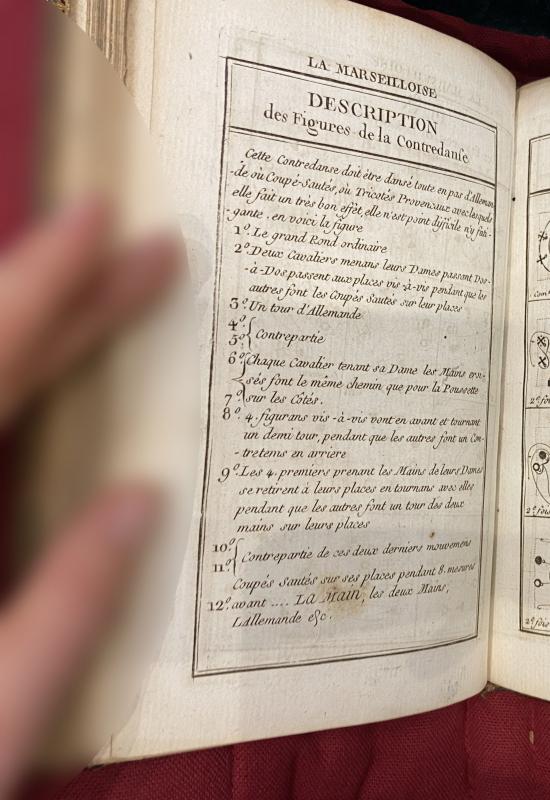 LA MARSEILLOISE
DESCRIPTION
des Figures de la Contredanse
Cette Contredanse doit être dansé toute en pas d'Alleman
-de où Coupé-Sautés, où Tricotés Provencaux avec lesquels
elle fait un très bon effèt, elle n'est point difficile n'y fati-
gante. en voici la figure
1º. Le grand Rond ordinaire
2º. Deux Cavaliers menans leurs Dames passent Dos-
-à-Dos passent aux places vis-à-vis pendant que les
autres font les Coupés Sautés sur leur places
3º Un tour d'Allemande
4º.
5º. Contrepartie
6º. Chaque Cavalier tenant sa Dame les Mains croi-
sés font le même chemin que pour la Poussette
7º. sur les Côtés.
8º. 4. figurans vis-à-vis vont en avant et tournant
un demi tour, pendant que les autres font un Con-
-tretems en arriere
9º. Les 4. premiers prenant les Mains de leurs Dames
se retirent à leurs places en tournans avec elles
pendant que les autres font un tour des deux
mains sur leurs places
10º.
11º. Contrepartie de ces deux derniers mouvemens
Coupés Sautés sur ses places pendant 8. mesures
12º. avant .... La Main, les deux Mains,
L'Allemande &c.
2º fois
2º fois
2º fois